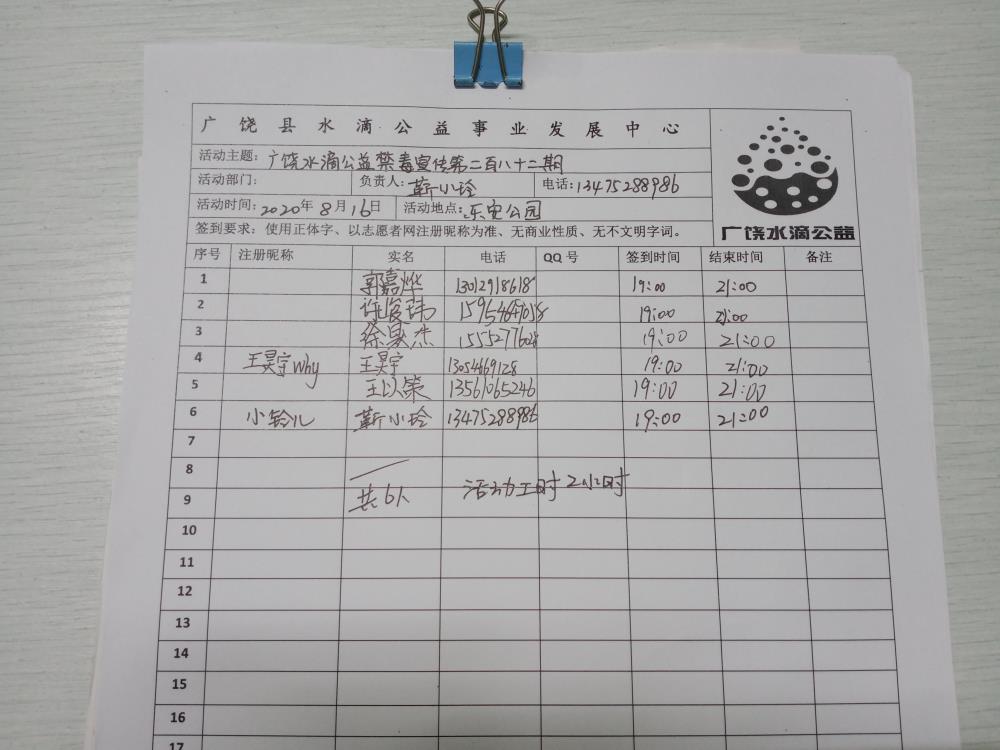 广饶县水滴公益事业发展中心
活动主题：广饶水滴公益禁毒宣传第二百八十二期
活动部门： 负责人：靳小玲 电话：13475288986
活动时间：2020年8月16日 活动地点：乐安公园
签到要求：使用正体字、以志愿者网注册昵称为准、无商业性质、无不文明字词。
广饶水滴公益
序号 注册昵称 实名 电话 QQ号 签到时间 结束时间 备注
1 郭嘉烨 13012918618 19:00 21:00
2 19:00 21:00
3 19:00 21:00
4 王昊宇why 王昊宇 13054669128 19:00 21:00
5 王以策 13561065246 19:00 21:00
6 小铃儿 靳小玲 13475288986 19:00 21:00
7
8
9 共6人 活动工时2小时
10
11
12
13
14
15
16
17